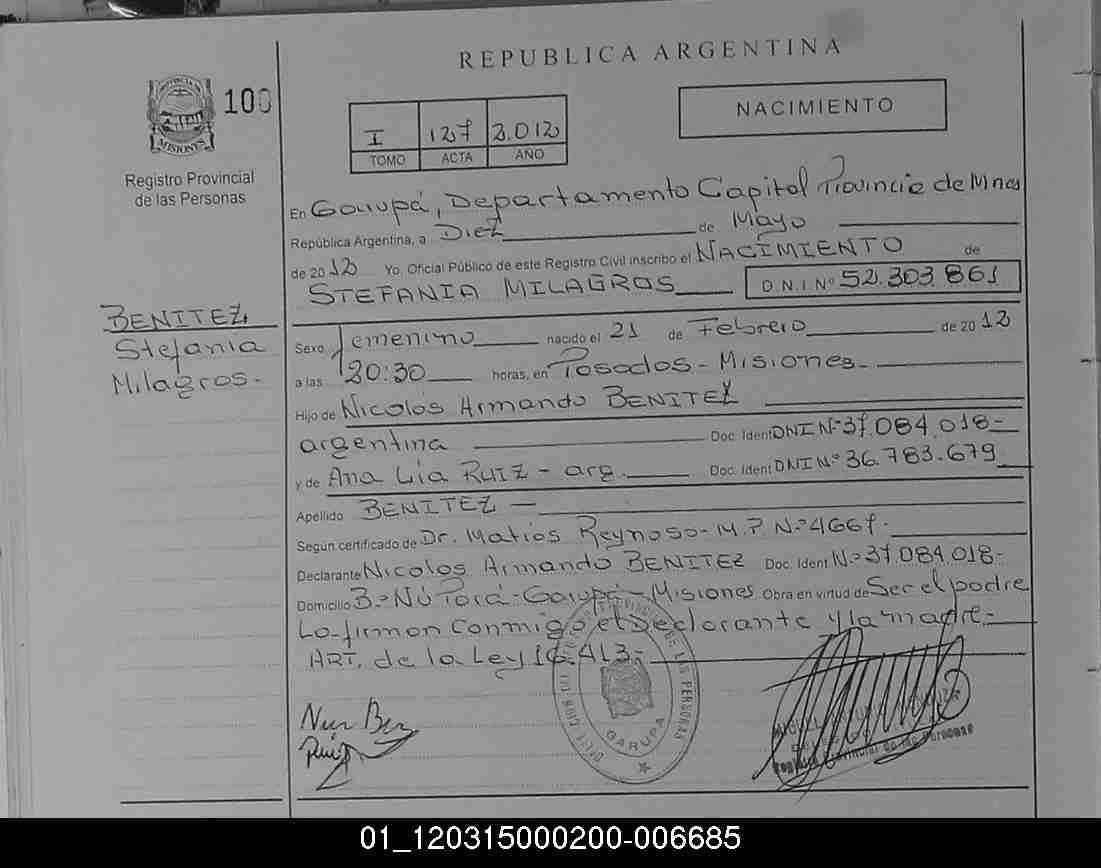 REPUBLICA ARGENTINA
PROVINCIA DE
MISIONES
100
Registro Provincial
de las Personas
I 127 2.012
TOMO ACTA AÑO
NACIMIENTO
En Garupá, Departamento Capital Provincia de Mnes
República Argentina, a Diez de Mayo
de 2012 Yo, Oficial Público de este Registro Civil inscribo el NACIMIENTO de
STEFANIA MILAGROS D.N.I Nº 52.303.861
BENITEZ,
Stefania
Milagros.-
Sexo femenino nacido el 21 de Febrero de 2012
a las 20:30 horas, en Posadas - Misiones.-
Hijo de Nicolás Armando BENITEZ
argentina Doc. Ident DNI Nº 37.084.018-
y de Ana Lía RUIZ - arg. Doc. Ident DNI Nº 36.783.679
Apellido BENITEZ -
Según certificado de Dr. Matías Reynoso - M.P. Nº 4667.
Declarante Nicolás Armando BENITEZ Doc. Ident Nº 37.084.018-
Domicilio Bº Ñu Porá - Garupá - Misiones Obra en virtud de Ser el padre
Lo firman conmigo el Declarante y la madre.-
ART. de la Ley 16.413.-
Ruiz
PROVINCIAL DE LAS PERSONAS
GARUPA
Registro Provincial de las Personas
01_120315000200-006685